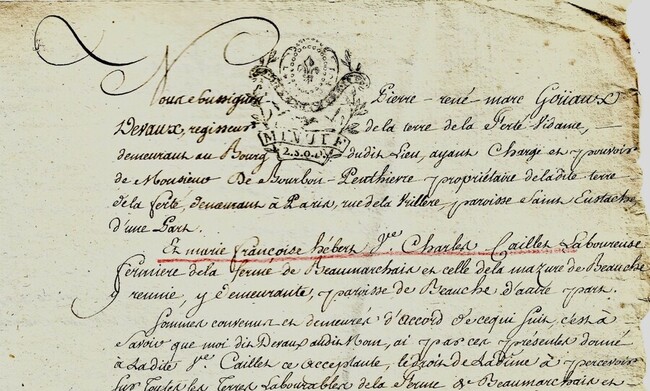 Nous soussignés Pierre-rené marc Goüaux
Devaux, regisseur de la terre de la ferté vidame,
MINUTE
2.S.
demeurant au Bourg dudit Lieu, ayant Charge et pouvoir
de Monsieur De Bourbon-Penthievre propriétaire de ladite terre
de la ferté, demeurant à Paris, rue de la Vrillere paroisse Saint Eustache
d'une Part.
Et marie françoise hébert Vve. Charles Caillet Laboureuse
fermiere de la ferme de Beaumarchais et celle de la mazure de Beauche
y reunie, y demeurante, paroisse de Beauche d'autre part.
Sommes convenus et demeurés d'accord de ce qui suit, c'est à
Savoir que moi dit Devaux audit Nom, ai par ces presentes donné
à Ladite Ve. Caillet ce acceptante, le droit de La Dîme à percevoir
sur Toutes les Terres Labourables de la ferme de Beaumarchais et